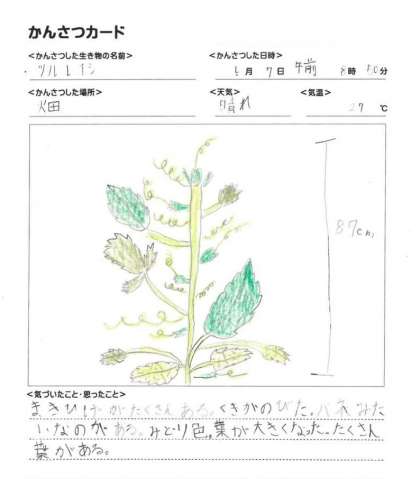 かんさつカード
<かんさつした生き物の名前>
ツルレイシ
<かんさつした日時>
6月 7日 午前 8時 50分
<かんさつした場所>
畑
<天気>
晴れ
<気温>
27 ℃
87cm
<気づいたこと・思ったこと>
まきひげがたくさんある。くきがのびた。バネみた
いなのがある。みどり色。葉が大きくなった。たくさん
葉がある。